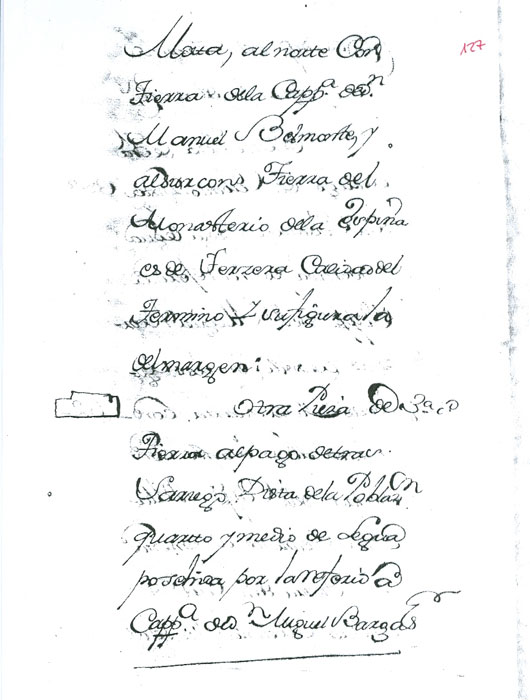 127
Mata, al norte Con
Tierra dela Capp.ª de d.n
Manuel Belmonte, y
al sur con Tierra del
Monasterio dela Espina
es de Terzera Calidad del
Termino Y su figura la
del margen:
Otra Pieza de
Tierra al pago detras
Dista dela Poblaz.on
quarto y medio de Legua
posehida por la referida
Capp.ª de d.n Miguel Bargas